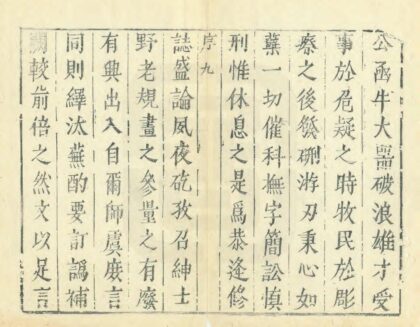 公函牛大噐破浪雄才受
事於危疑之時牧民於彫
瘵之後發硎游刃秉心如
蘖一切催科撫字簡訟慎
刑惟休息之是爲恭逢修
序 九
誌盛論夙夜矻孜召紳士
野老規畫之參量之有廢
有興出入自爾師虞庶言
同則繹汰蕪酌要訂譌補
闕較前倍之然文以足言